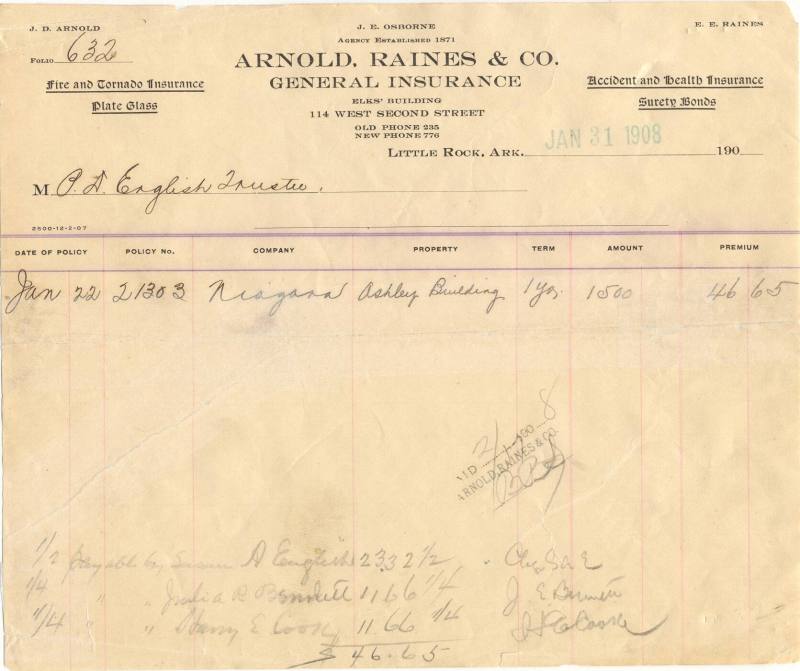 J. D. ARNOLD
J. E. OSBORNE
E. E. RAINES
AGENCY ESTABLISHED 1871
FOLIO 632
ARNOLD, RAINES & CO.
GENERAL INSURANCE
Fire and Tornado Insurance
Plate Glass
Accident and Health Insurance
Surety Bonds
ELKS' BUILDING
114 WEST SECOND STREET
OLD PHONE 235
NEW PHONE 776
LITTLE ROCK, ARK. JAN 31 1908 190
M P. D. English Trustee.
2500-12-2-07
DATE OF POLICY POLICY No. COMPANY PROPERTY TERM AMOUNT PREMIUM
Jan 22 21303 Niagara Ashley Building 1 yr. 1500 46 65
AID 2/1 190 8
ARNOLD, RAINES & CO.
1/2 payable by Susan A English 23.32 1/2
1/4 " " Julia R Bennett 11 66 1/4 J. E Bennett
1/4 " " Harry E Cook 11 66 1/4
$ 46.65